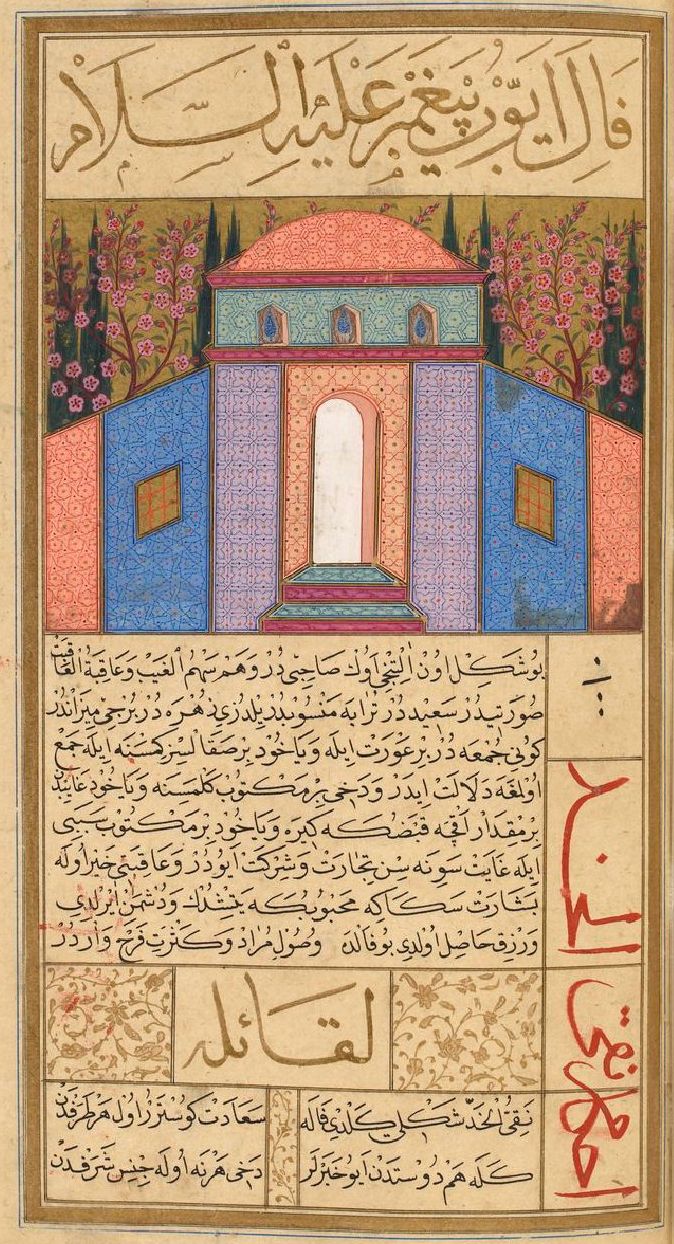 فَالِ اَيّوُبْ پَيْغَمْبَرْ عَلَيْهِ السَّلَامْ
بو شَكِل اون اَلْتِنْجِی اَوِڭ صَاحِبِی دُرْ وَهَمْ سَهْمُ الْغَيْب وَعَاقِبَةُ الْعَاقِبَتْ
صُورَتِيدُرْ سَعِيددُرْ تُرابَه مَنْسُوبْدُرْ يِلْدِزِی زُهَرَه دُرْ بُرْجِی مِيزَانْدُرْ
كُونِی جُمْعَه دُرْ بِرْ عَوْرَتْ اِيلَه وَيَاخُودْ بِرْ صَقَالْسِزْ كِمْسَنَه اِيلَه جَمْعْ
اُولْمَغَه دَلَالَتْ اِيدَرْ وَدَخِی بِرْ مَكْتُوبْ كَلْمَسِنَه وَيَاخُودْ غَايِبْدَنْ
بِرْ مِقْدَارْ اَقْچَه قَبْضْ كَه كِيرَه وَيَاخُودْ بِرْ مَكْتُوبْ سَبَبِی
اِيلَه غَايَتْ سَوِنَه سِنْ تِجَارَتْ وَشِرْكَتْ اَيُودُرْ وَعَاقِبَتِی خَيْرْ اُولَه
بَشَارَتْ سَكَا كِه مَحْبُوبُكَه يَتِشْدُكْ وَدُشْمَنْ اَيْرِلْدِی
وَرِزِقْ حَاصِلْ اُولْدِی بُو فَالْدَه وُصُولِ مُرَادْ وَكَثْرَتِ فَرَحْ وَارْدُرْ
لقَائله
نَقِیُّ الْخَدّ شَكْلِی كَلْدِی فَالَه سَعَادَتْ كُوسْتَرُرْ اُولْ هَرْ طَرَفْدَنْ
كَلَه هَمْ دُوسْتدَنْ اَيُو خَبَرْلَرْ دَخِی هَرْنَه اُولَه جِنْسِ شَرَفْدَنْ
الخد
نقی